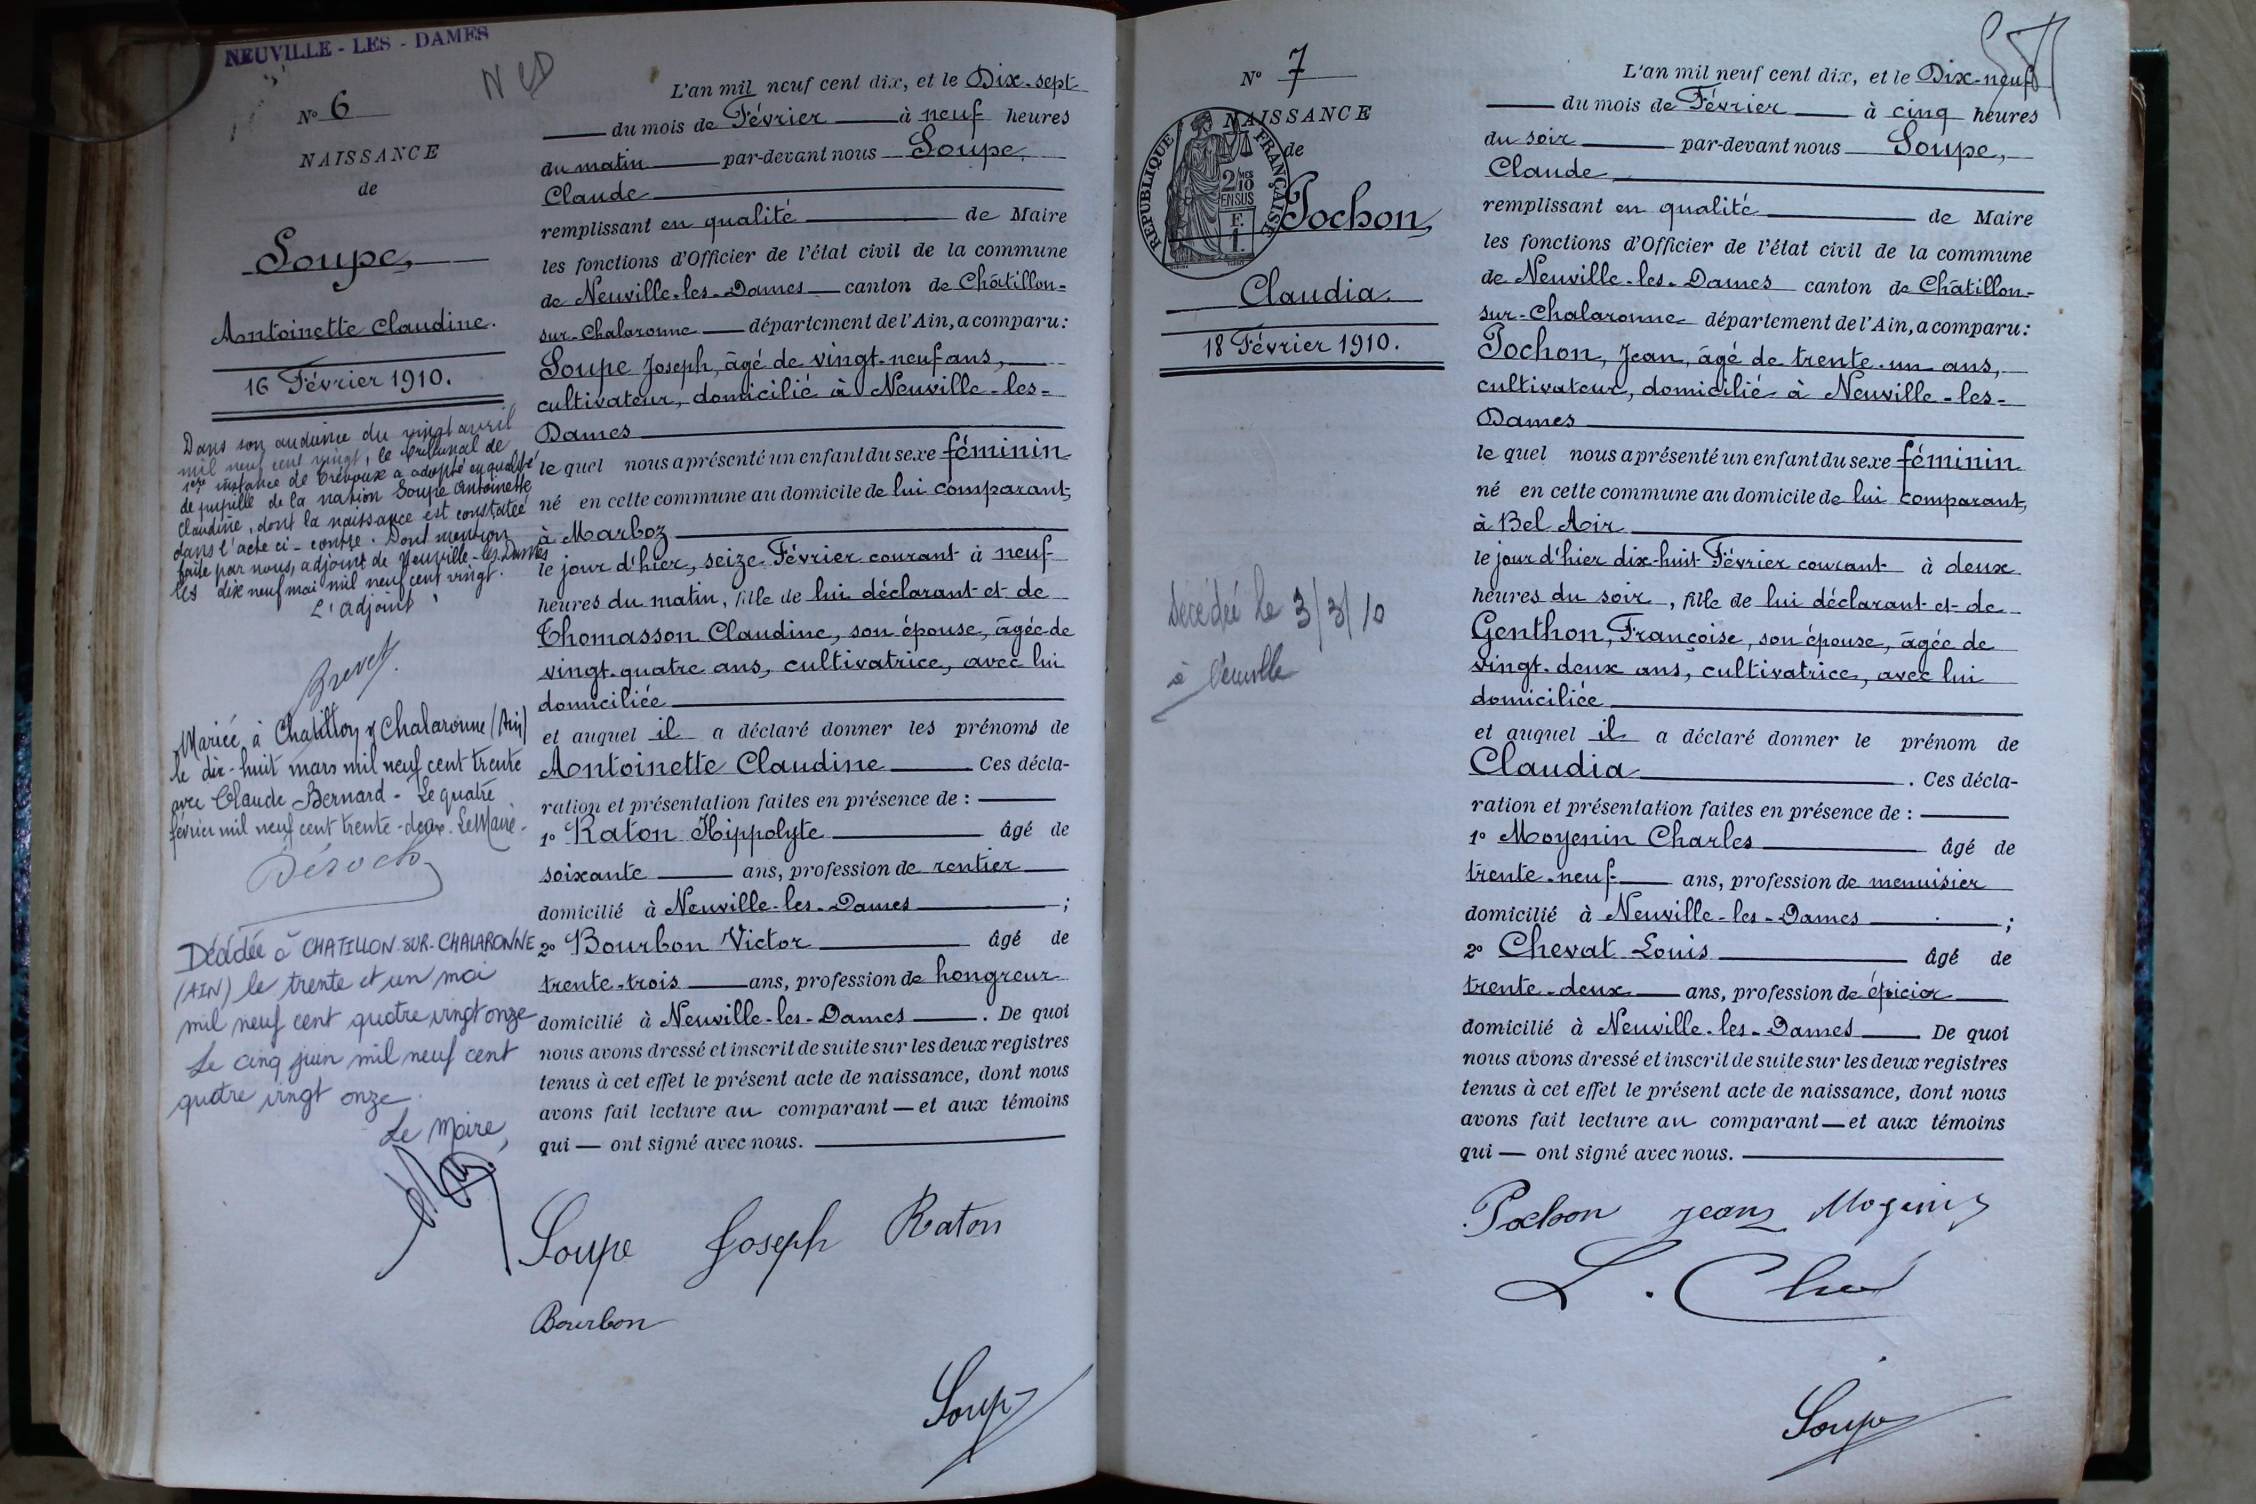 NEUVILLE - LES - DAMES
N° 6
NAISSANCE
de
Soupe,
Antoinette Claudine.
16 Février 1910.
Dans son audience du vingt avril
mil neuf cent vingt, le tribunal de
1ère instance de Trévoux a adopté en qualité
de pupille de la nation Soupe Antoinette
Claudine, dont la naissance est constatée
dans l'acte ci-contre. Dont mention
faite par nous, adjoint de Neuville-les-Dames
les dix neuf mai mil neuf cent vingt.
L'adjoint
Brevet.
Mariée à Chatillon s/ Chalaronne (Ain)
le dix-huit mars mil neuf cent trente
avec Claude Bernard - Le quatre
février mil neuf cent trente-deux. Le Maire -
Décédée à CHATILLON-SUR-CHALARONNE
(AIN) le trente et un mai
mil neuf cent quatre vingt onze
Le cinq juin mil neuf cent
quatre vingt onze.
Le Maire,
L'an mil neuf cent dix, et le Dix-sept
du mois de Février à neuf heures
du matin par-devant nous Soupe,
Claude
remplissant en qualité de Maire
les fonctions d'Officier de l'état civil de la commune
de Neuville-les-Dames canton de Châtillon-
sur-Chalaronne département de l'Ain, a comparu:
Soupe Joseph, âgé de vingt-neuf ans,
cultivateur, domicilié à Neuville-les-
Dames
le quel nous a présenté un enfant du sexe féminin
né en cette commune au domicile de lui comparant,
à Marboz
le jour d'hier, seize Février courant à neuf
heures du matin, fille de lui déclarant et de
Thomasson Claudine, son épouse, âgée de
vingt-quatre ans, cultivatrice, avec lui
domiciliée
et auquel il a déclaré donner les prénoms de
Antoinette Claudine Ces décla-
ration et présentation faites en présence de :
1° Raton Hippolyte âgé de
soixante ans, profession de rentier
domicilié à Neuville-les-Dames ;
2° Bourbon Victor âgé de
trente-trois ans, profession de hongreur
domicilié à Neuville-les-Dames . De quoi
nous avons dressé et inscrit de suite sur les deux registres
tenus à cet effet le présent acte de naissance, dont nous
avons fait lecture au comparant — et aux témoins
qui — ont signé avec nous.
Soupe Joseph Raton
Bourbon
Soupe
N° 7
NAISSANCE
de
RÉPUBLIQUE FRANÇAISE
2/10 MES
EN SUS
F.
1.
Pochon,
Claudia.
18 Février 1910.
décédée le 3/3/10
à Neuville
L'an mil neuf cent dix, et le Dix-neuf
du mois de Février à cinq heures
du soir par-devant nous Soupe,
Claude
remplissant en qualité de Maire
les fonctions d'Officier de l'état civil de la commune
de Neuville-les-Dames canton de Châtillon-
sur-Chalaronne département de l'Ain, a comparu:
Pochon, Jean, âgé de trente-un ans,
cultivateur, domicilié à Neuville-les-
Dames
le quel nous a présenté un enfant du sexe féminin
né en cette commune au domicile de lui comparant,
à Bel Air
le jour d'hier dix-huit Février courant à deux
heures du soir, fille de lui déclarant et de
Genthon, Françoise, son épouse, âgée de
vingt-deux ans, cultivatrice, avec lui
domiciliée
et auquel il a déclaré donner le prénom de
Claudia . Ces décla-
ration et présentation faites en présence de :
1° Moyenin Charles âgé de
trente-neuf ans, profession de menuisier
domicilié à Neuville-les-Dames ;
2° Chevat Louis âgé de
trente-deux ans, profession de épicier
domicilié à Neuville-les-Dames De quoi
nous avons dressé et inscrit de suite sur les deux registres
tenus à cet effet le présent acte de naissance, dont nous
avons fait lecture au comparant — et aux témoins
qui — ont signé avec nous.
Pochon Jean Moyenin
Soupe